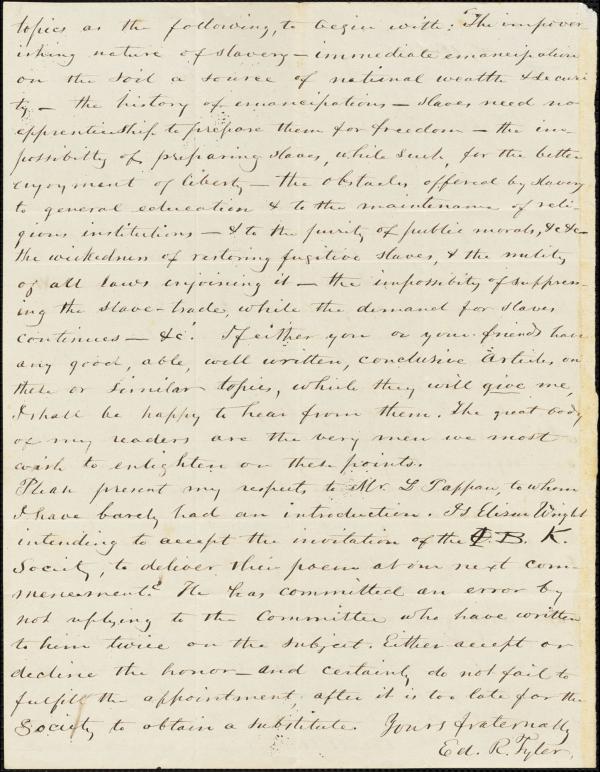 topics as the following, to begin with: "The impover-
ishing nature of slavery – immediate emancipation
on the soil a source of national wealth & securi
ty – the history of emancipations – slaves need no
apprenticeship to prepare them for freedom – the im-
possibility of preparing slaves, while such, for the better
enjoyment of liberty – the obstacles, offered by slavery
to general education & to the maintenance of reli-
gious institutions – & to the purity of public morals, &c &c –
the wickedness of restoring fugitive slaves, & the nullity
of all laws enjoining it – the impossibity of suppress-
ing the slave-trade, while the demand for slaves
continues – &c. If either you or your friends have
any good, able, well written, conclusive Articles, on
these or similar topics, which they will give me,
I shall be happy to hear from them. The great body
of my readers are the very men we most
wish to enlighten on these points.
Please present my respects to Mr. L Tappan, to whom
I have barely had an introduction. Is Elizur Wright
intending to accept the invitation of the Φ. B. K.
Society, to deliver their poem at our next com-
mencement? He has committed an error by
not replying to the Committee who have written
to him twice on the subject. Either accept or
decline the honor – and certainly do not fail to
fulfill the appointment, after it is too late for the
Society to obtain a substitute. Yours fraternally
Ed. R. Tyler.